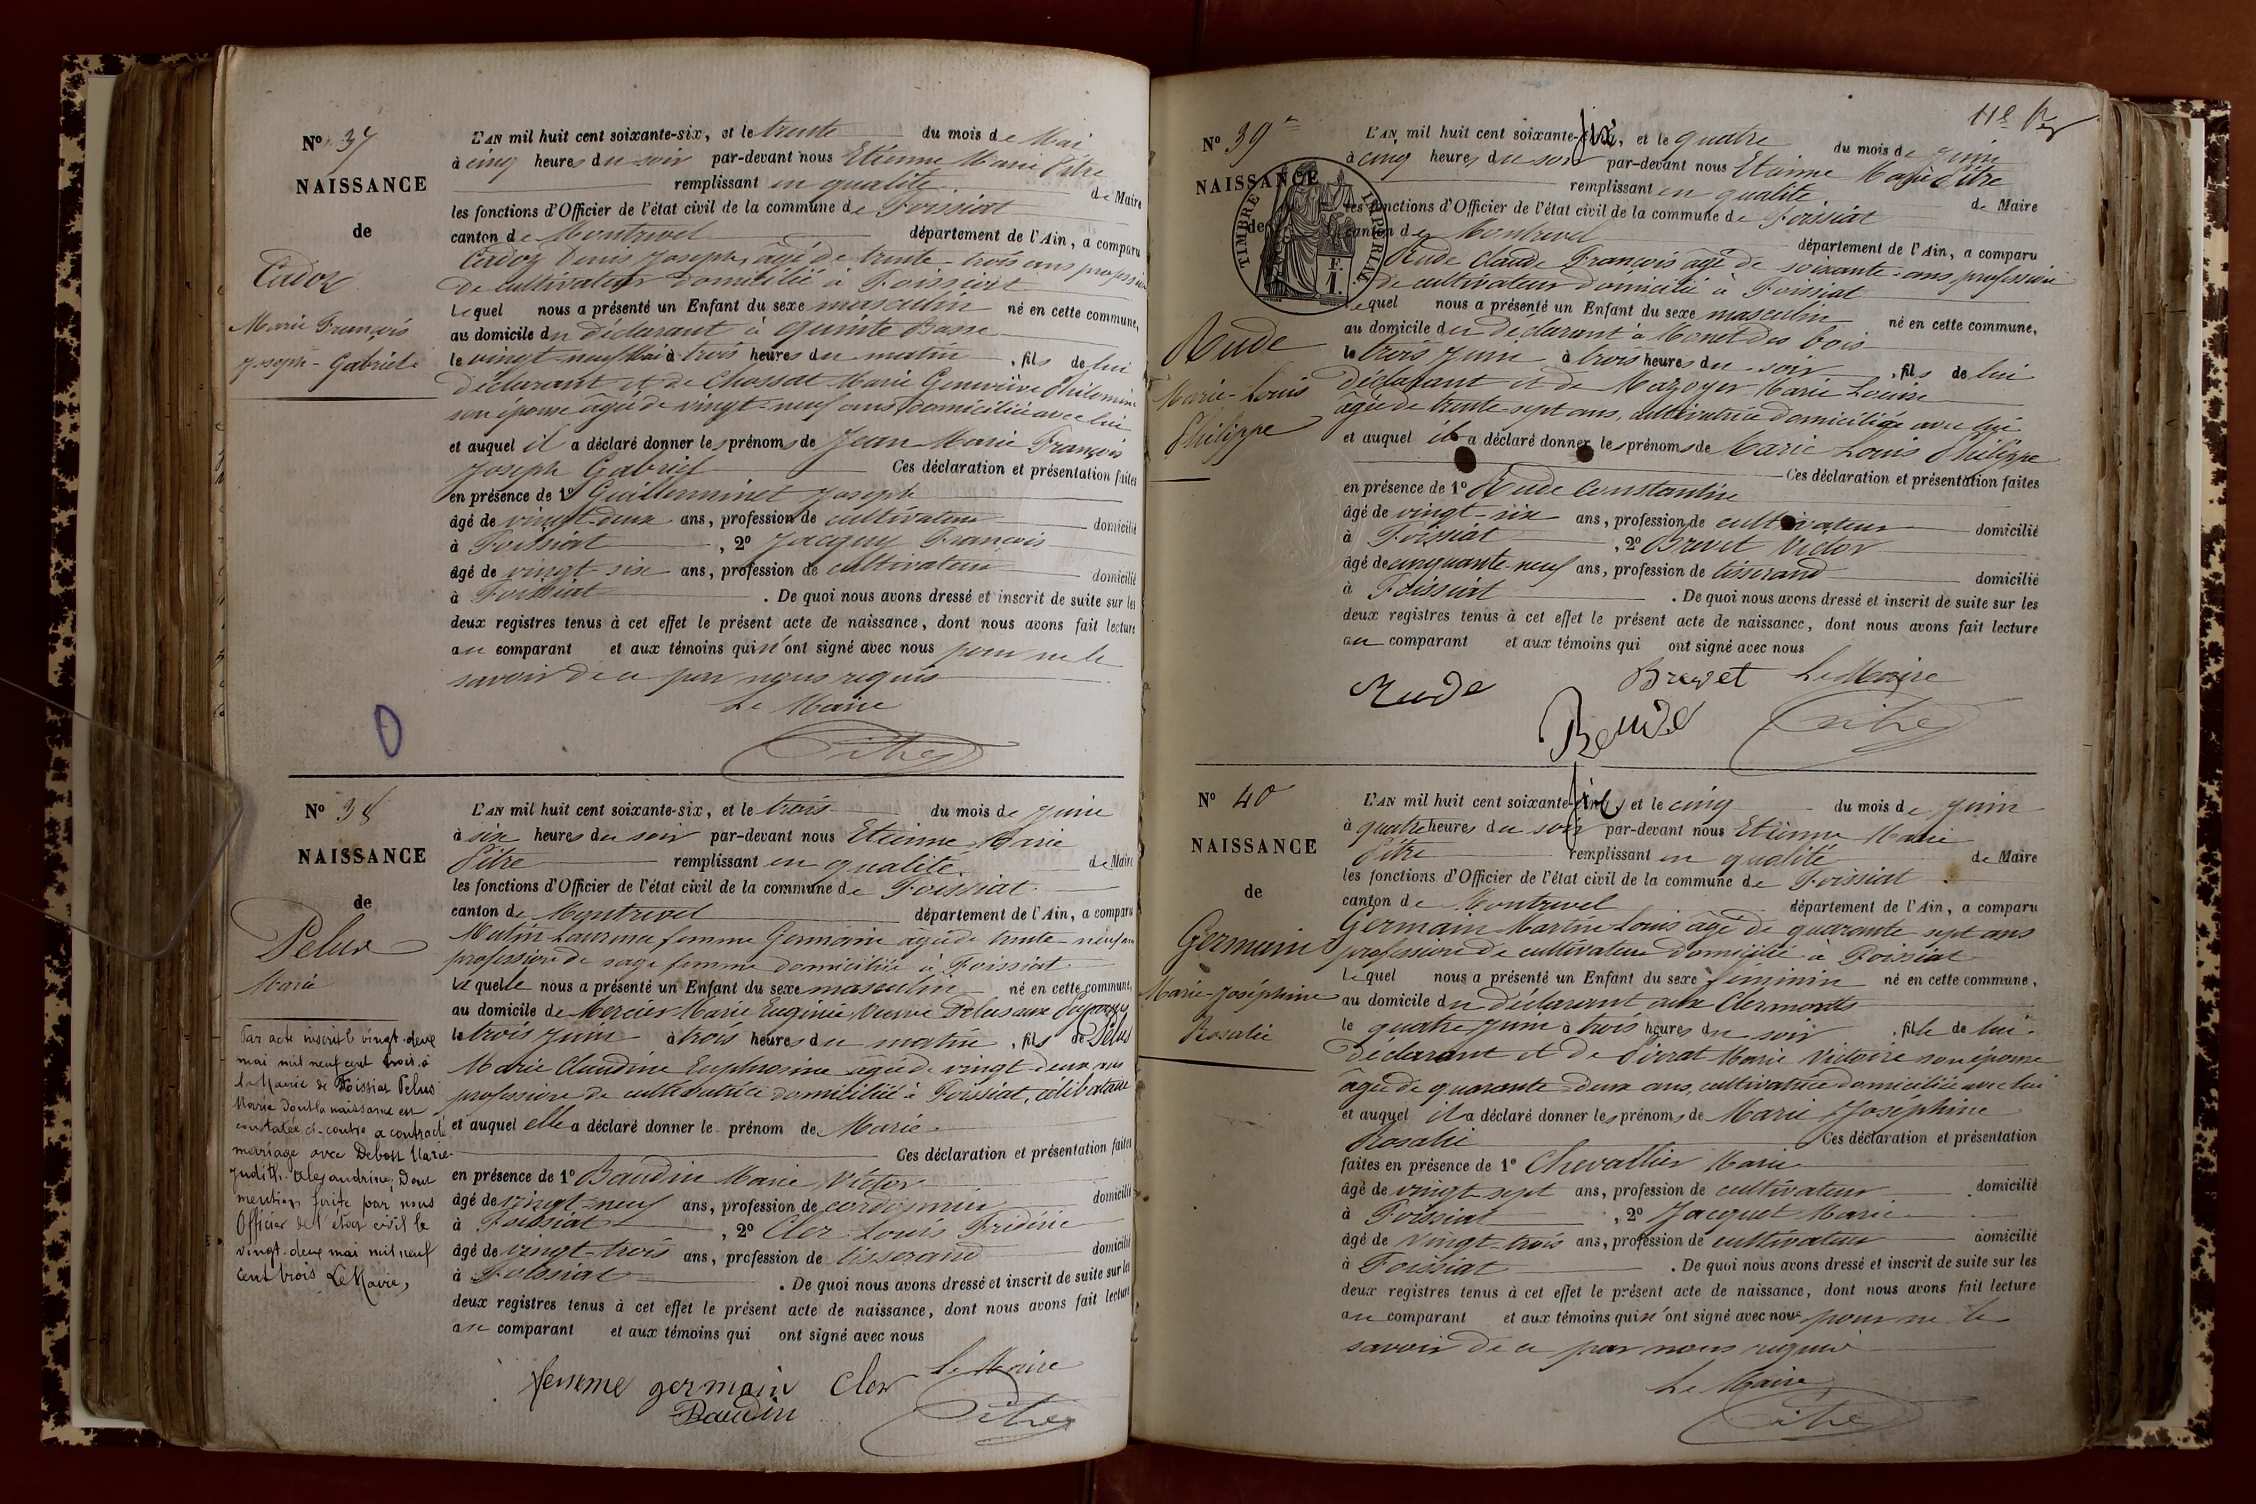 N° 37
NAISSANCE
de
Cadoz
Marie François
Joseph-Gabriel
L'AN mil huit cent soixante-six, et le trente du mois de Mai
à cinq heures du soir par-devant nous Etienne Marie Pitre
remplissant en qualité de Maire
les fonctions d'Officier de l'état civil de la commune de Foissiat
canton de Montrevel département de l'Ain, a comparu
Cadoz Denis Joseph, âgé de trente-trois ans profession
de cultivateur domicilié à Foissiat
Lequel nous a présenté un Enfant du sexe masculin né en cette commune,
au domicile du déclarant à quinte Basse
le vingt-neuf Mai à trois heures du matin, fils de lui
déclarant et de Chossat Marie Geneviève Philomène
son épouse âgée de vingt-neuf ans domiciliée avec lui
et auquel il a déclaré donner les prénoms de Jean Marie François
Joseph Gabriel Ces déclaration et présentation faites
en présence de 1° Guillerminet Joseph
âgé de vingt-deux ans, profession de cultivateur domicilié
à Foissiat, 2° Jacquet François
âgé de vingt six ans, profession de cultivateur domicilié
à Foissiat. De quoi nous avons dressé et inscrit de suite sur les
deux registres tenus à cet effet le présent acte de naissance, dont nous avons fait lecture
au comparant et aux témoins qui n'ont signé avec nous pour ne le
savoir de ce par nous requis
Le Maire
Pitre
N° 38
NAISSANCE
de
Pelus
Marie
Par acte inscrit le vingt-deux
mai mil neuf cent trois à
la Mairie de Foissiat Pelus
Marie dont la naissance est
constatée ci-contre a contracté
mariage avec Debost Marie
Judith Alexandrine; Dont
mention faite par nous
Officier de l'état civil le
vingt-deux mai mil neuf
cent trois Le Maire,
L'AN mil huit cent soixante-six, et le trois du mois de Juin
à six heures du soir par-devant nous Etienne Marie
Pitre remplissant en qualité de Maire
les fonctions d'Officier de l'état civil de la commune de Foissiat
canton de Montrevel département de l'Ain, a comparu
Mutin Laurence femme Germain âgée de trente-neuf ans
profession de sage femme domiciliée à Foissiat
Lequelle nous a présenté un Enfant du sexe masculin né en cette commune,
au domicile de Mercier Marie Eugénie Veuve Pelus aux
le trois Juin à trois heures du matin, fils de Pelus
Marie Claudine Euphrosine âgée de vingt deux ans
profession de cultivatrice domiciliée à Foissiat, célibataire
et auquel elle a déclaré donner le prénom de Marie
Ces déclaration et présentation faites
en présence de 1° Baudin Marie Victor
âgé de vingt-neuf ans, profession de cordonnier domicilié
à Foissiat, 2° Cler Louis Frédéric
âgé de vingt-trois ans, profession de tisserand domicilié
à Foissiat. De quoi nous avons dressé et inscrit de suite sur les
deux registres tenus à cet effet le présent acte de naissance, dont nous avons fait lecture
au comparant et aux témoins qui ont signé avec nous
femme germain Cler Le Maire
Baudin Pitre
N° 39
NAISSANCE
de
TIMBRE IMPERIAL
F.
1.
Rude
Marie-Louis
Philippe
L'AN mil huit cent soixante-six, et le quatre du mois de Juin
à cinq heures du soir par-devant nous Etienne Marie Pitre
remplissant en qualité de Maire
les fonctions d'Officier de l'état civil de la commune de Foissiat
canton de Montrevel département de l'Ain, a comparu
Rude Claude François âgé de soixante ans, profession
de cultivateur domicilié à Foissiat
Lequel nous a présenté un Enfant du sexe masculin né en cette commune,
au domicile du déclarant à Monet des bois
le trois Juin à trois heures du soir, fils de lui
déclarant et de Mazoyer Marie Louise
âgée de trente-sept ans, cultivatrice domiciliée avec lui
et auquel il a déclaré donner les prénoms de Marie Louis Philippe
Ces déclaration et présentation faites
en présence de 1° Rude Constantin
âgé de vingt-six ans, profession de cultivateur domicilié
à Foissiat, 2° Brevet Victor
âgé de cinquante-neuf ans, profession de tisserand domicilié
à Foissiat. De quoi nous avons dressé et inscrit de suite sur les
deux registres tenus à cet effet le présent acte de naissance, dont nous avons fait lecture
au comparant et aux témoins qui ont signé avec nous
Rude Brevet Le Maire
Pitre
N° 40
NAISSANCE
de
Germain
Marie-Joséphine
Rosalie
L'AN mil huit cent soixante-six, et le cinq du mois de Juin
à quatre heures du soir par-devant nous Etienne Marie
Pitre remplissant en qualité de Maire
les fonctions d'Officier de l'état civil de la commune de Foissiat
canton de Montrevel département de l'Ain, a comparu
Germain Martin Louis âgé de quarante sept ans
profession de cultivateur domicilié à Foissiat
Lequel nous a présenté un Enfant du sexe féminin né en cette commune,
au domicile du déclarant aux Clermonts
le quatre Juin à trois heures du soir, fille de lui
déclarant et de Pirrat Marie Victoire son épouse
âgée de quarante-deux ans, cultivatrice domiciliée avec lui
et auquel il a déclaré donner les prénoms de Marie Joséphine
Rosalie Ces déclaration et présentation
faites en présence de 1° Chevallier Marie
âgé de vingt sept ans, profession de cultivateur domicilié
à Foissiat, 2° Jacquet Marie
âgé de vingt-trois ans, profession de cultivateur domicilié
à Foissiat. De quoi nous avons dressé et inscrit de suite sur les
deux registres tenus à cet effet le présent acte de naissance, dont nous avons fait lecture
au comparant et aux témoins qui n'ont signé avec nous pour ne le
savoir de ce par nous requis
Le Maire
Pitre